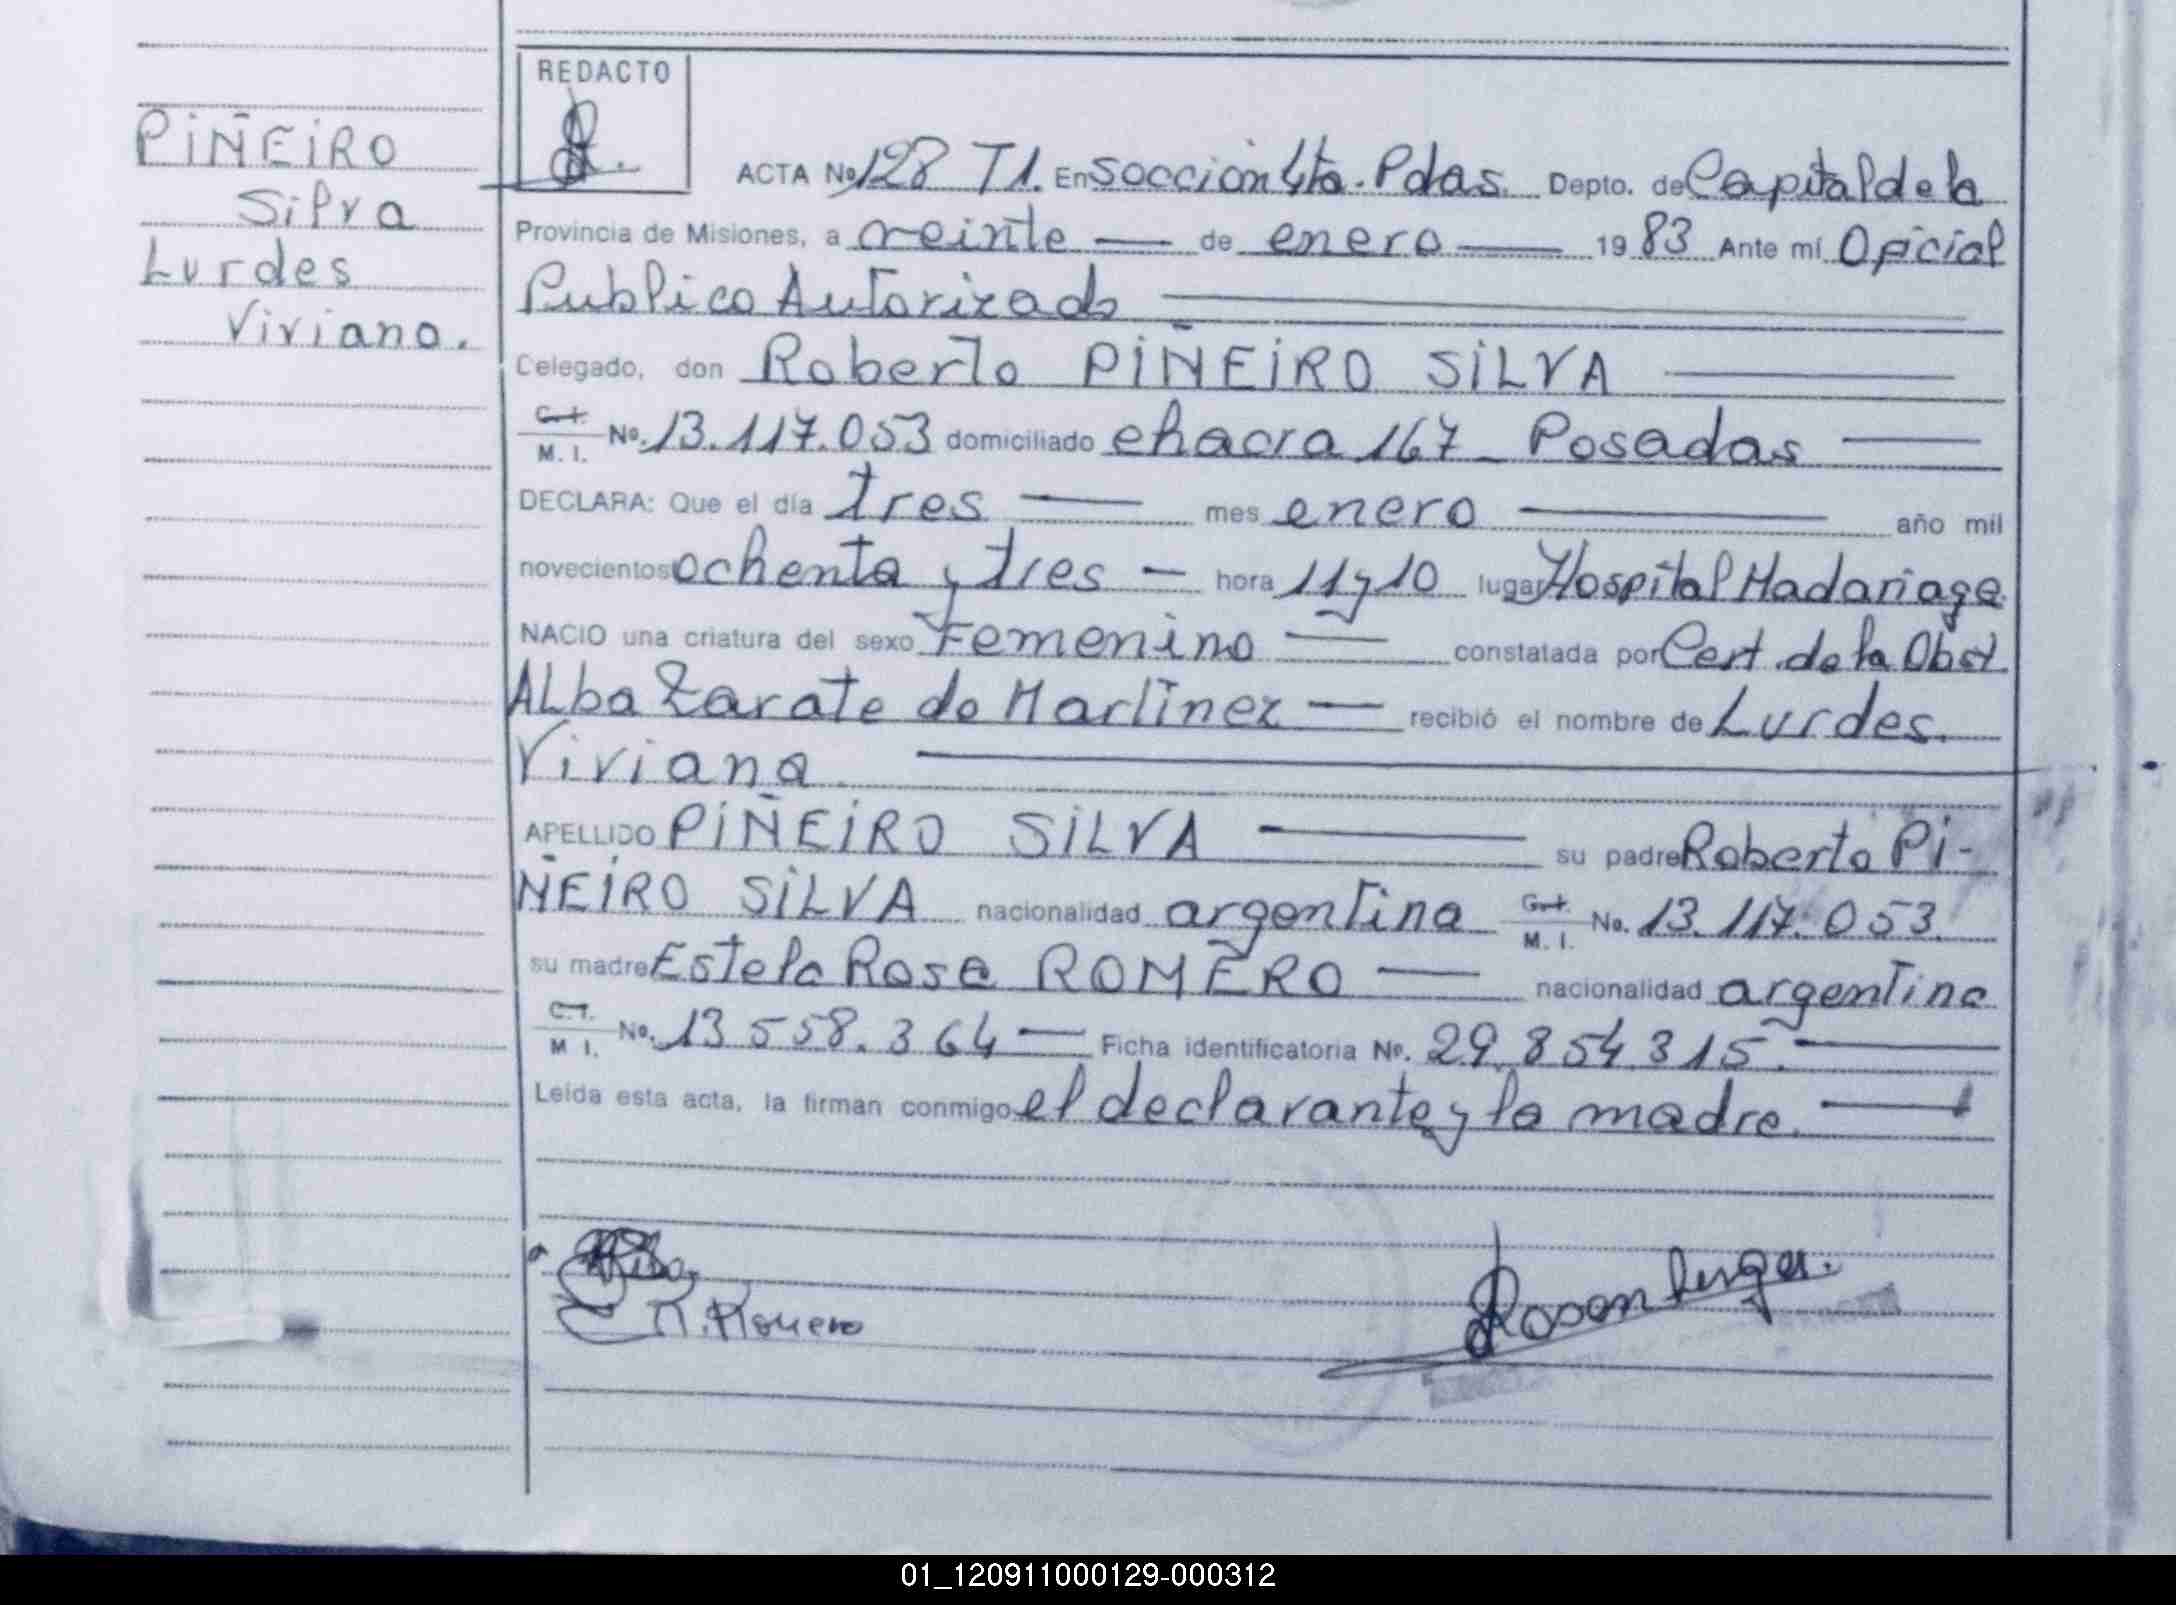 REDACTO
PIÑEIRO
Silva
Lurdes
Viviana.
ACTA No 128 T1. En Sección 4ta. Pdas. Depto. de Capital de la
Provincia de Misiones, a veinte de enero 1983 Ante mí Oficial
Publico Autorizado
Celegado, don Roberto PIÑEIRO SILVA
C.I. M. I. No. 13.117.053 domiciliado chacra 167 - Posadas
DECLARA: Que el día tres mes enero año mil
novecientos ochenta y tres - hora 11 y 10 lugar Hospital Madariaga
NACIO una criatura del sexo Femenino constatada por Cert. de la Obst.
Alba Zarate de Martinez recibió el nombre de Lurdes
Viviana
APELLIDO PIÑEIRO SILVA su padre Roberto Pi-
ÑEIRO SILVA nacionalidad argentina C.I. M. I. No. 13.117.053
su madre Estela Rosa ROMERO nacionalidad argentina
C.I. M I. No. 13.558.364 Ficha identificatoria No. 29.854.315.
Leída esta acta, la firman conmigo el declarante y la madre.
R. Romero
Rosemberger.
01_120911000129-000312